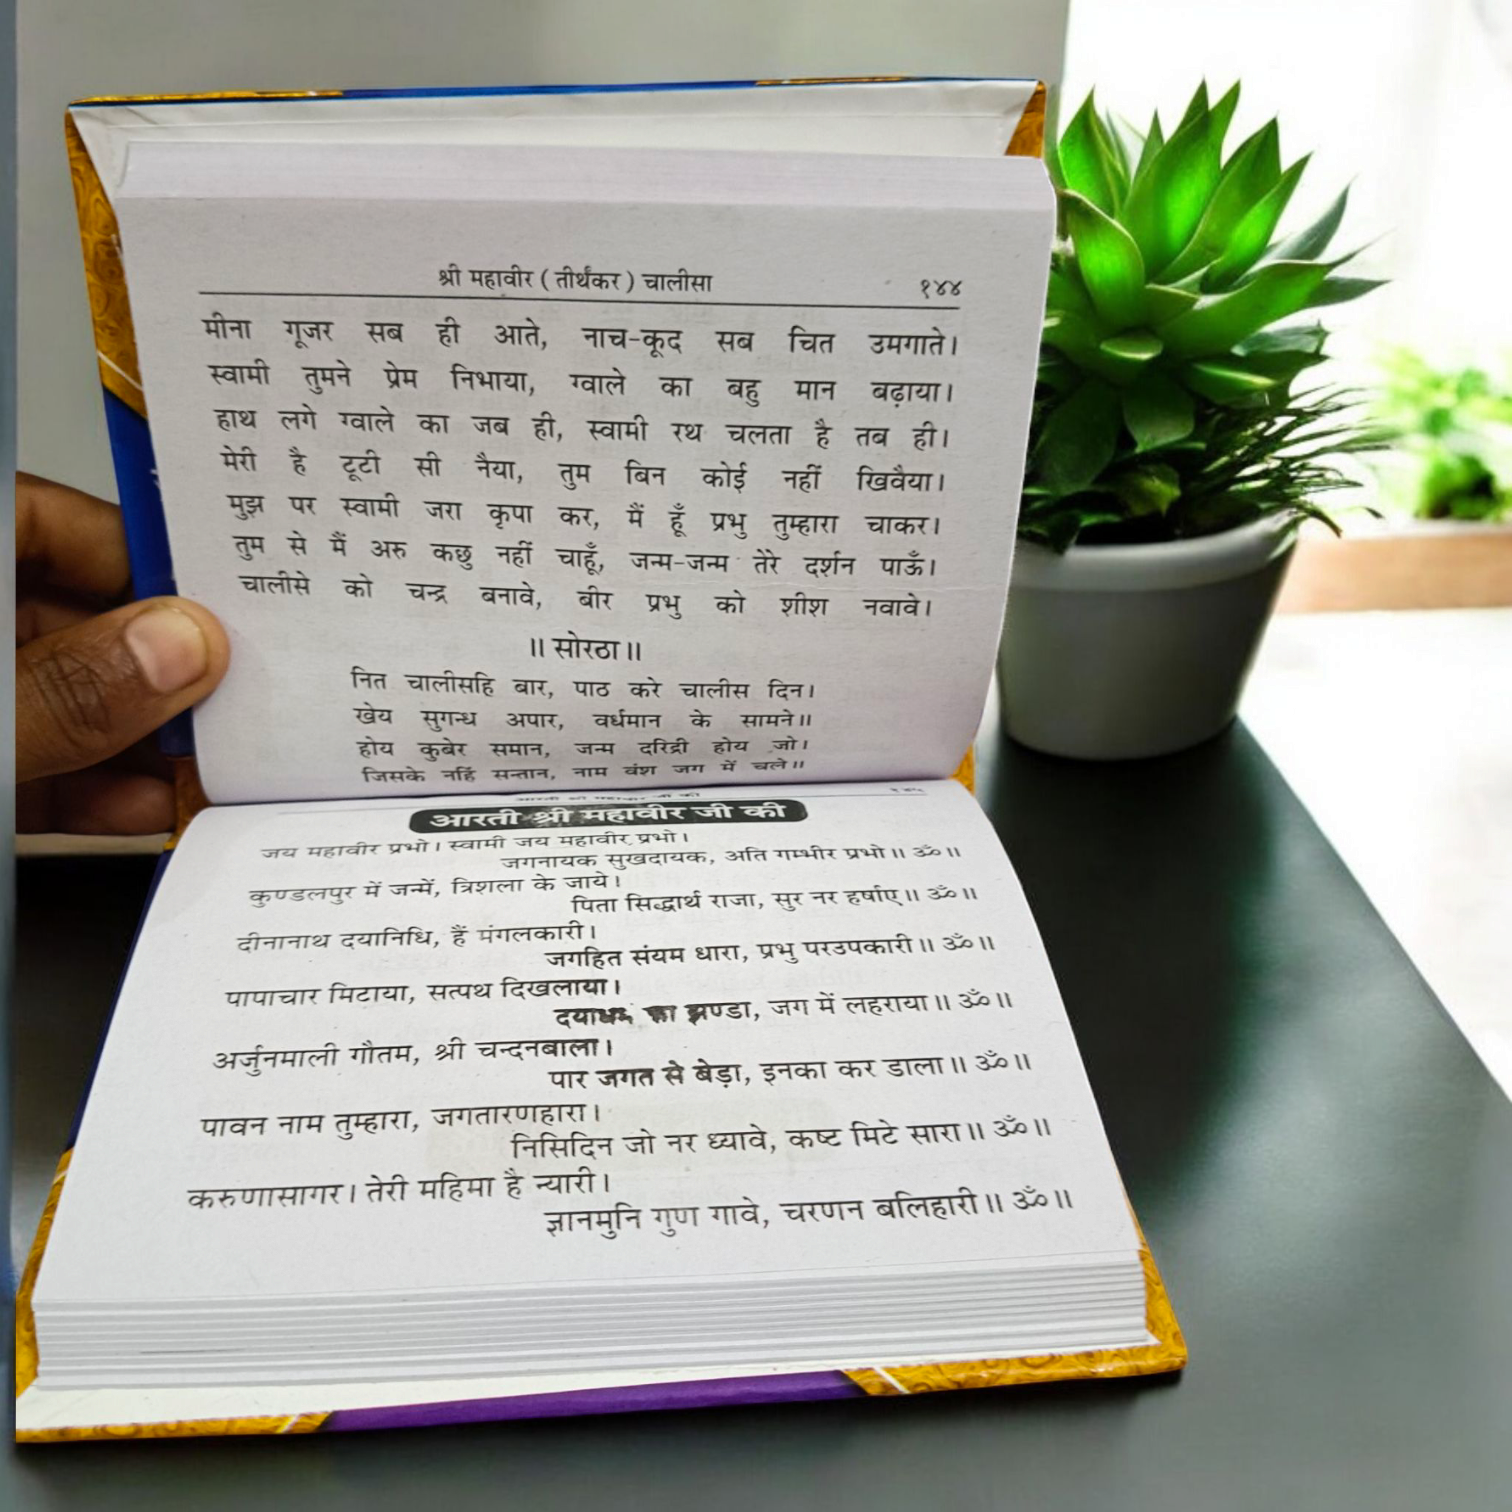 श्री महावीर ( तीर्थंकर ) चालीसा १४४
मीना गूजर सब ही आते, नाच-कूद सब चित उमगाते।
स्वामी तुमने प्रेम निभाया, ग्वाले का बहु मान बढ़ाया।
हाथ लगे ग्वाले का जब ही, स्वामी रथ चलता है तब ही।
मेरी है टूटी सी नैया, तुम बिन कोई नहीं खिवैया।
मुझ पर स्वामी जरा कृपा कर, मैं हूँ प्रभु तुम्हारा चाकर।
तुम से मैं अरु कछु नहीं चाहूँ, जन्म-जन्म तेरे दर्शन पाऊँ।
चालीसे को चन्द्र बनावे, बीर प्रभु को शीश नवावे।
॥ सोरठा ॥
नित चालीसहि बार, पाठ करे चालीस दिन।
खेय सुगन्ध अपार, वर्धमान के सामने॥
होय कुबेर समान, जन्म दरिद्री होय जो।
जिसके नहिं सन्तान, नाम वंश जग में चले॥
आरती श्री महावीर जी की
जय महावीर प्रभो। स्वामी जय महावीर प्रभो।
जगनायक सुखदायक, अति गम्भीर प्रभो॥ ॐ॥
कुण्डलपुर में जन्में, त्रिशला के जाये।
पिता सिद्धार्थ राजा, सुर नर हर्षाए॥ ॐ॥
दीनानाथ दयानिधि, हैं मंगलकारी।
जगहित संयम धारा, प्रभु परउपकारी॥ ॐ॥
पापाचार मिटाया, सत्पथ दिखलाया।
झण्डा, जग में लहराया॥ ॐ॥
अर्जुनमाली गौतम, श्री चन्दनबाला।
पार जगत से बेड़ा, इनका कर डाला॥ ॐ॥
पावन नाम तुम्हारा, जगतारणहारा।
निसिदिन जो नर ध्यावे, कष्ट मिटे सारा॥ ॐ॥
करुणासागर। तेरी महिमा है न्यारी।
ज्ञानमुनि गुण गावे, चरणन बलिहारी॥ ॐ॥